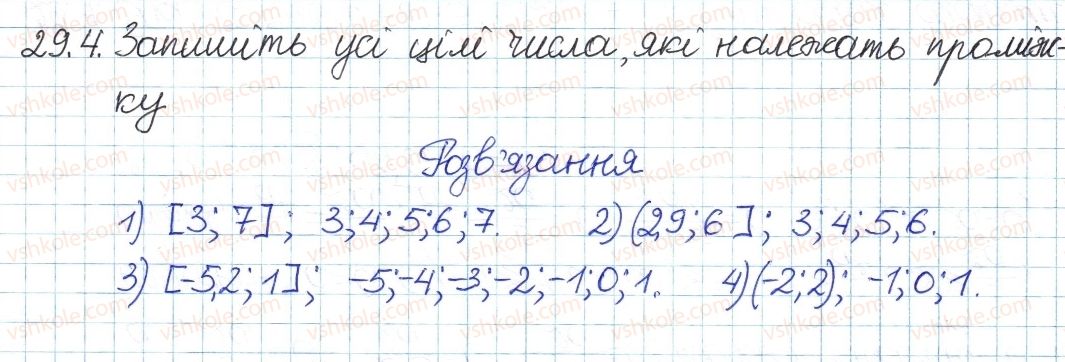 29.4. Запишіть усі цілі числа, які належать проміж-
ку
Розв'язання
1) [3; 7]; 3; 4; 5; 6; 7. 2) (2,9; 6]; 3; 4; 5; 6.
3) [-5,2; 1]; -5; -4; -3; -2; -1; 0; 1. 4) (-2; 2); -1; 0; 1.